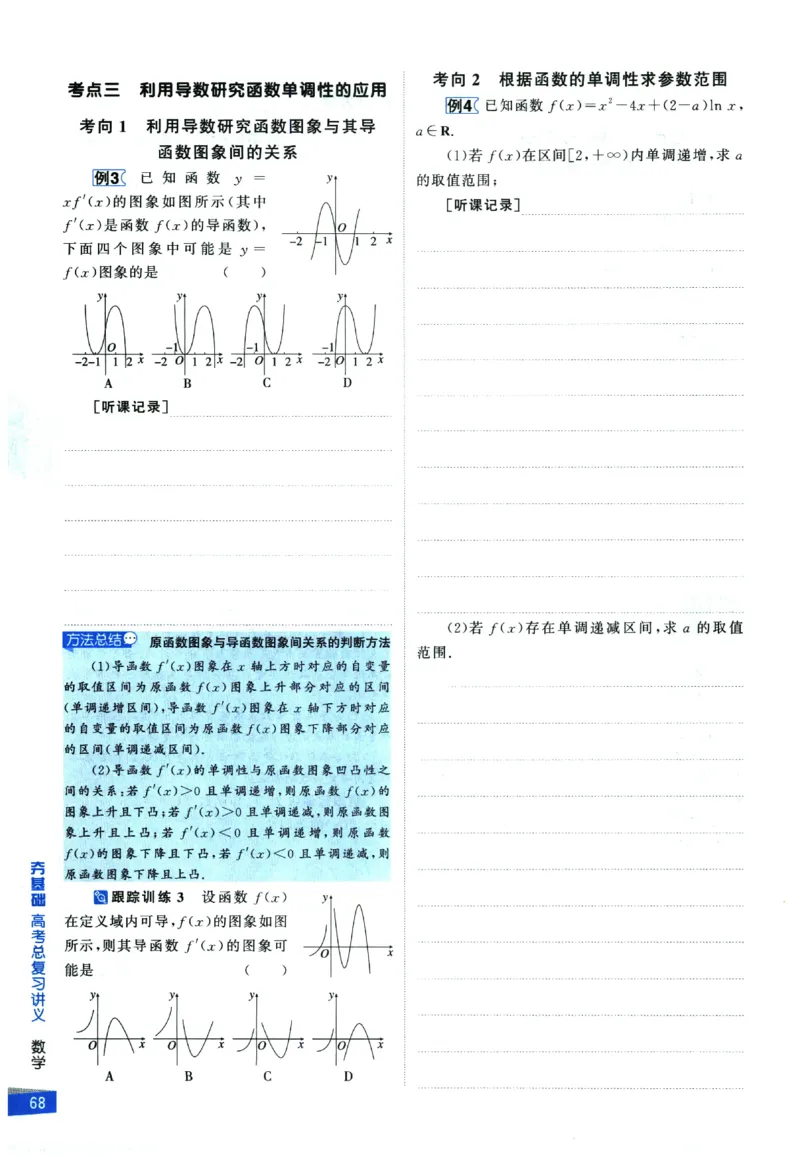 考点三 利用导数研究函数单调性的应用
考向 1 利用导数研究函数图象与其导
函数图象间的关系
例3 已知函数 y =
xf′(x)的图象如图所示(其中
f′(x)是函数 f(x)的导函数),
下面四个图象中可能是 y =
f(x)图象的是 ( )
y
O
-2 -1 1 2 x
y y y y
O -1 -1 -1
-2 -1 1 2 x -2 O 1 2 x -2 O 1 2 x -2 O 1 2 x
A B C D
[听课记录]
方法总结 原函数图象与导函数图象间关系的判断方法
(1)导函数 f′(x)图象在 x 轴上方时对应的自变量
的取值区间为原函数 f(x)图象上升部分对应的区间
(单调递增区间),导函数 f′(x)图象在 x 轴下方时对应
的自变量的取值区间为原函数 f(x)图象下降部分对应
的区间(单调递减区间).
(2)导函数 f′(x)的单调性与原函数图象凹凸性之
间的关系:若 f′(x)>0 且单调递增,则原函数 f(x)的
图象上升且下凸;若 f′(x)>0 且单调递减,则原函数图
象上升且上凸;若 f′(x)<0 且单调递增,则原函数
f(x)的图象下降且下凸,若 f′(x)<0 且单调递减,则
原函数图象下降且上凸.
跟踪训练 3 设函数 f(x)
在定义域内可导,f(x)的图象如图
所示,则其导函数 f′(x)的图象可
能是 ( )
y
O x
y y y y
O x O x O x O x
A B C D
考向 2 根据函数的单调性求参数范围
例4 已知函数 f(x)=x²-4x+(2-a)ln x,
a∈R.
(1)若 f(x)在区间[2,+∞)内单调递增,求 a
的取值范围;
[听课记录]
(2)若 f(x)存在单调递减区间,求 a 的取值
范围.
夯基础 高考总复习讲义 数学
68